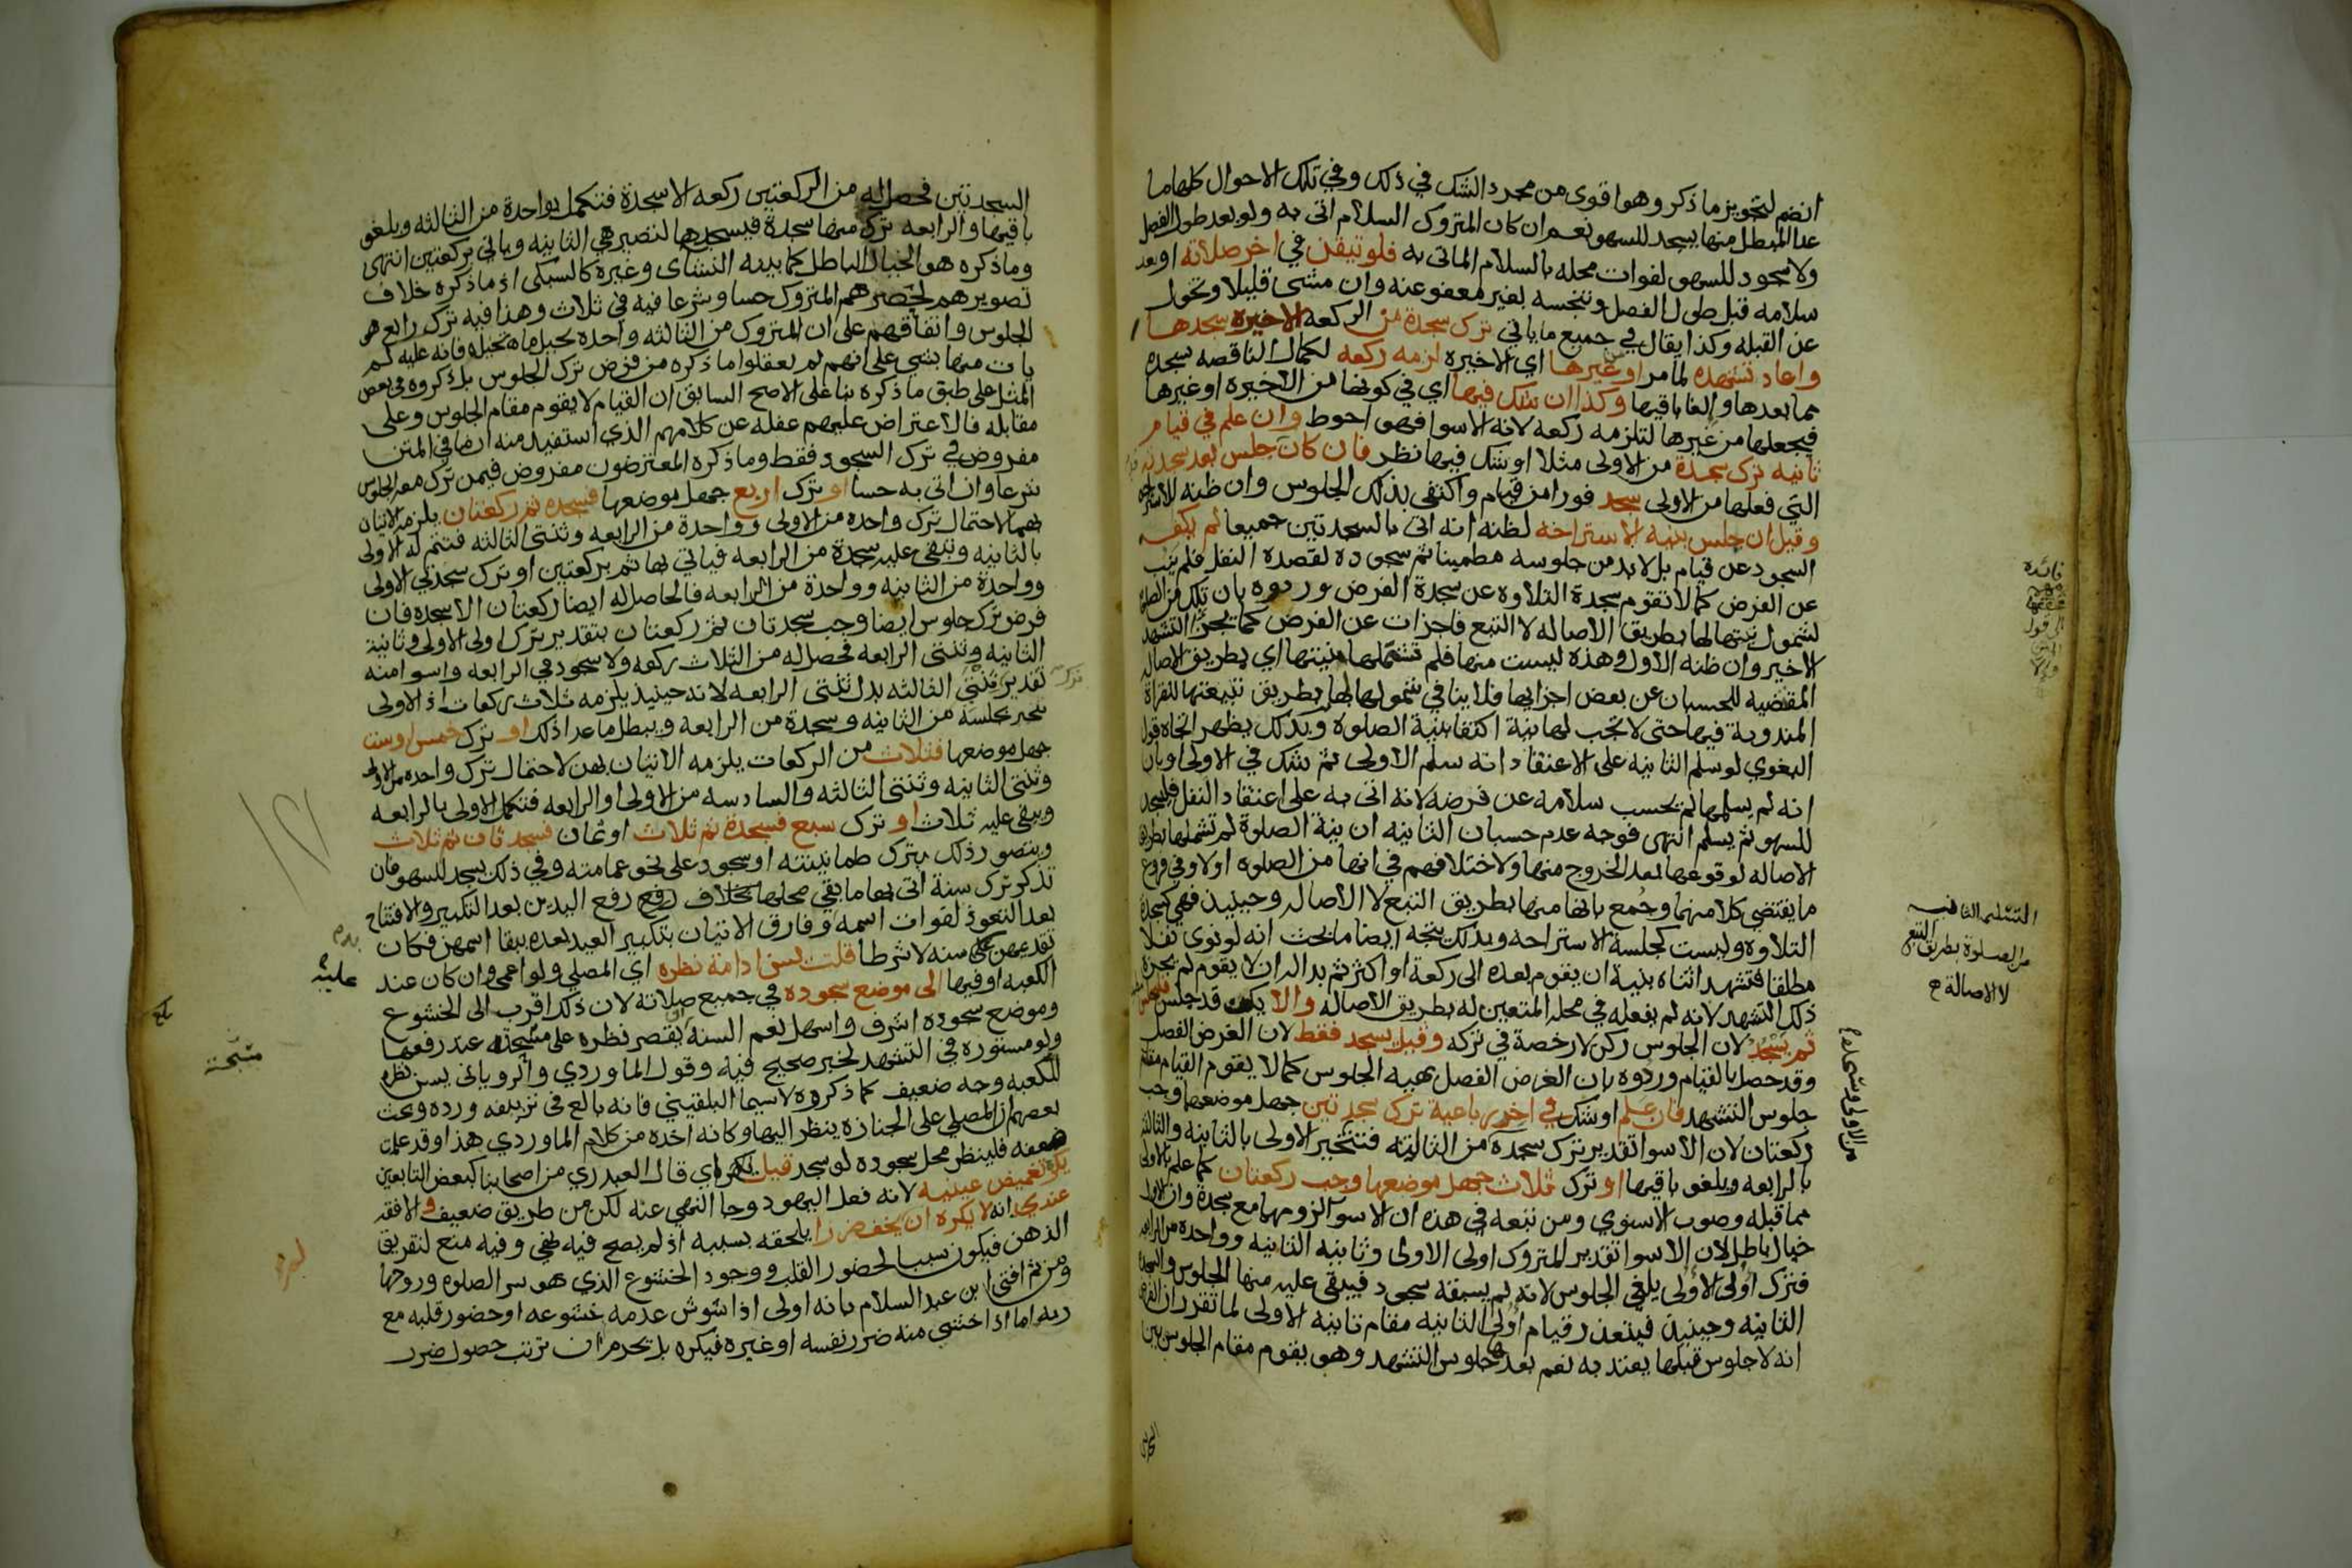 انضم لتجويز ما ذكر وهو اقوى من مجرد الشك في ذلك وفي تلك الاحوال كلها ما
عدا المبطل منها يسجد للسهو نعم ان كان المتروك السلام اتى به ولو بعد طول الفصل
ولا سجود للسهو لفوات محله بالسلام الماتى به فلو تيقن في اخر صلاته او بعد
سلامه قبل طول الفصل وتنجسه بغير معفو عنه وان مشى قليلا وتحول
عن القبله وكذا يقال في جميع ما ياتي ترك سجدة من الركعه الاخيره سجدها
واعاد تشهده لما مر او من غيرها اي الاخيره لزمه ركعه لكمال الناقصه بسجده
مما بعدها والغا باقيها وكذا ان شك فيها اي في كونها من الاخيرة او غيرها
فيجعلها من غيرها لتلزمه ركعه لانه الاسوا فهو احوط وان علم في قيام
ثانيه ترك سجدة من الاولى مثلا او شك فيها نظر فان كان جلس بعد سجدته
التي فعلها من الاولى سجد فورا من قيام واكتفى بذلك الجلوس وان ظنه للاستراحه
وقيل ان جلس بنيه الاستراحه لظنه انه اتى بالسجدتين جميعا لم يكف
السجود عن قيام بل لابد من جلوسه مطمينا ثم سجوده لقصده النفل فلم ينب
عن الفرض كما لا تقوم سجدة التلاوه عن سجدة الفرض وردوه بان تلك من الصلوة
لشمول نيتها لها بطريق الاصاله لا التبع فاجزات عن الفرض كما يجزي التشهد
الاخير وان ظنه الاول وهذه ليست منها فلم تشملها نيتها اي بطريق الاصاله
المقتضيه للحسبان عن بعض اجزايها فلا ينافي شمولها لها بطريق تبيعتها للقراة
المندوبة فيها حتى لا تجب لها نية اكتفا بنية الصلوة وبذلك يظهر اتجاه قول
البغوي لو سلم الثانيه على الاعتقاد انه سلم الاولى ثم شك في الاولى او بان
انه لم يسلمها لم يحسب سلامه عن فرضه لانه اتى به على اعتقاد النفل فليسجد
للسهو ثم يسلم انتهى فوجه عدم حسبان الثانيه ان نية الصلوة لم تشملها بطريق
الاصاله لوقوعها بعد الخروج منها ولاختلافهم في انها من الصلوه اولا وفي فروع
ما يقتضى كلا منهما وجمع بانها منها بطريق التبع لا الاصاله وحينيذ فهي كسجدة
التلاوه وليست كجلسة الاستراحه وبذلك يتجه ايضا ما بحث انه لو نوى نفلا
مطلقا فتشهد اثناه بنية ان يقوم بعده الى ركعة او اكثر ثم بدا له ان لا يقوم لم يجزه
ذلك التشهد لانه لم يفعله في محله المتعين له بطريق الاصاله والا يكن قد جلس فليجلس
ثم يسجد لان الجلوس ركن لا رخصة في تركه وقيل يسجد فقط لان الغرض الفصل
وقد حصل بالقيام وردوه بان الغرض الفصل بهيه الجلوس كما لا يقوم القيام مقام
جلوس التشهد فان علم او شك في اخر رباعية ترك سجدتين جهل موضعهما وجب
ركعتان لان الاسوا تقدير ترك سجدة من الثالثه فتنجبر الاولى بالثانيه والثالثه
بالرابعه ويلغو باقيها او ترك ثلاث جهل موضعها وجب ركعتان كما علم بالاولى
مما قبله وصوب الاسنوي ومن تبعه في هذه ان الاسوا لزومهما مع سجدة وان الاول
خيال باطل لان الاسوا تقدير المتروك اولى الاولى وثانيه الثانيه وواحده من الرابعه
فترك اولى الاولى يلغي الجلوس لانه لم يسبقه سجود فيبقى عليه منها الجلوس والسجدة
الثانيه وحينيذ فيتعذر قيام اولى الثانيه مقام ثانيه الاولى لما تقرر ان الفرض
انه لا جلوس قبلها يعتد به نعم بعدها جلوس التشهد وهو يقوم مقام الجلوس بين
التسليم الثانيه
من الصلوة بطريق التبع
لا الاصالة ح
فائدة
السجدتين فحصل له من الركعتين ركعه الا سجدة فتكمل بواحدة من الثالثه ويلغو
باقيها والرابعه ترك منها سجدة فيسجدها لتصير هي الثانيه وياتي بركعتين انتهى
وما ذكره هو الخيال الباطل كما بينه النشاى وغيره كالسبكى اذ ما ذكره خلاف
تصويرهم لحصرهم المتروك حسا وشرعا فيه في ثلاث وهذا فيه ترك رابع هو
الجلوس واتفاقهم على ان المتروك من الثالثه واحدة
يات منها بشي على انهم لم يعقلوا ما ذكره من فرض ترك الجلوس بل ذكروه في بعض
المثل على طبق ما ذكره بنا على الاصح السابق ان القيام لا يقوم مقام الجلوس وعلى
مقابله فالاعتراض عليهم غفله عن كلامهم الذي استفيد منه ان ما في المتن
مفروض في ترك السجود فقط وما ذكره المعترضون مفروض فيمن ترك معه الجلوس
شرعا وان اتى به حسا او ترك اربع جهل موضعها فسجده ثم ركعتان يلزمه الاتيان
بهما لاحتمال ترك واحده من الاولى وواحدة من الرابعه وثنتى الثالثه فتتم له الاولى
بالثانيه وتبقى عليه سجدة من الرابعه فياتي بها ثم بركعتين او ترك سجدتي الاولى
وواحدة من الثانيه وواحدة من الرابعه فالحاصل له ايضا ركعتان الا سجده فان
فرض ترك جلوس ايضا وجب سجدتان ثم ركعتان بتقدير ترك اولى الاولى وثانية
الثانيه وثنتى الرابعه فحصل له من الثلاث ركعه ولا سجود في الرابعه واسوا منه
تقدير ثنتي الثالثه بدل ثنتى الرابعه لانه حينيذ يلزمه ثلاث ركعات اذ الاولى
تنجبر بجلسة من الثانيه وسجدة من الرابعه ويبطل ما عدا ذلك او ترك خمس او ست
جهل موضعها فثلاث من الركعات يلزمه الاتيان بهن لاحتمال ترك واحده من الاولى
وثنتى الثانيه وثنتى الثالثه والسادسه من الاولى او الرابعه فتكمل الاولى بالرابعه
ويبقى عليه ثلاث او ترك سبع فسجدة ثم ثلاث او ثمان فسجدتان ثم ثلاث
ويتصور ذلك بترك طمانينته او سجود على نحو عمامته وفي ذلك يسجد للسهو فان
تذكر ترك سنة اتى بها ما بقي محلها بخلاف رفع رفع اليدين بعد التكبير والافتتاح
بعد التعوذ لفوات اسمه وفارق الاتيان بتكبير العيد بعده ببقا اسمهن فكان
تقديمهن عليه سنه لا شرطا قلت يسن ادامة نظره اي المصلي ولو اعمى وان كان عند
الكعبه او فيها الى موضع سجوده في جميع صلاته لان ذلك اقرب الى الخشوع
وموضع سجوده اشرف واسهل نعم السنه ان يقصر نظره على مسبحته عند رفعها
ولو مستوره في التشهد لخبر صحيح فيه وقول الماوردي والروياني يسن نظره
للكعبه وجه ضعيف كما ذكروه لا سيما البلقيني فانه بالغ في تزييفه ورده وبحث
بعضهم ان المصلي على الجنازه ينظر اليها وكانه اخذه من كلام الماوردي هذا وقد علمت
ضعفه فلينظر محل سجوده لو سجد قيل يكره اي قال العبدري من اصحابنا كبعض التابعين
يكره تغميض عينيه لانه فعل اليهود وجا النهي عنه لكن من طريق ضعيف والافقه
عندي انه لا يكره ان لم يخف ضررا يلحقه بسببه اذ لم يصح فيه نهي وفيه منع لتفريق
الذهن فيكون سببا لحضور القلب ووجود الخشوع الذي هو سر الصلوه وروحها
ومن ثم افتى ابن عبد السلام بانه اولى اذا شوش عدمه خشوعه او حضور قلبه مع
ربه اما اذا خشي منه ضرر نفسه او غيره فيكره بل تحرم ان ترتب حصول ضرر
عليه
مسبحة